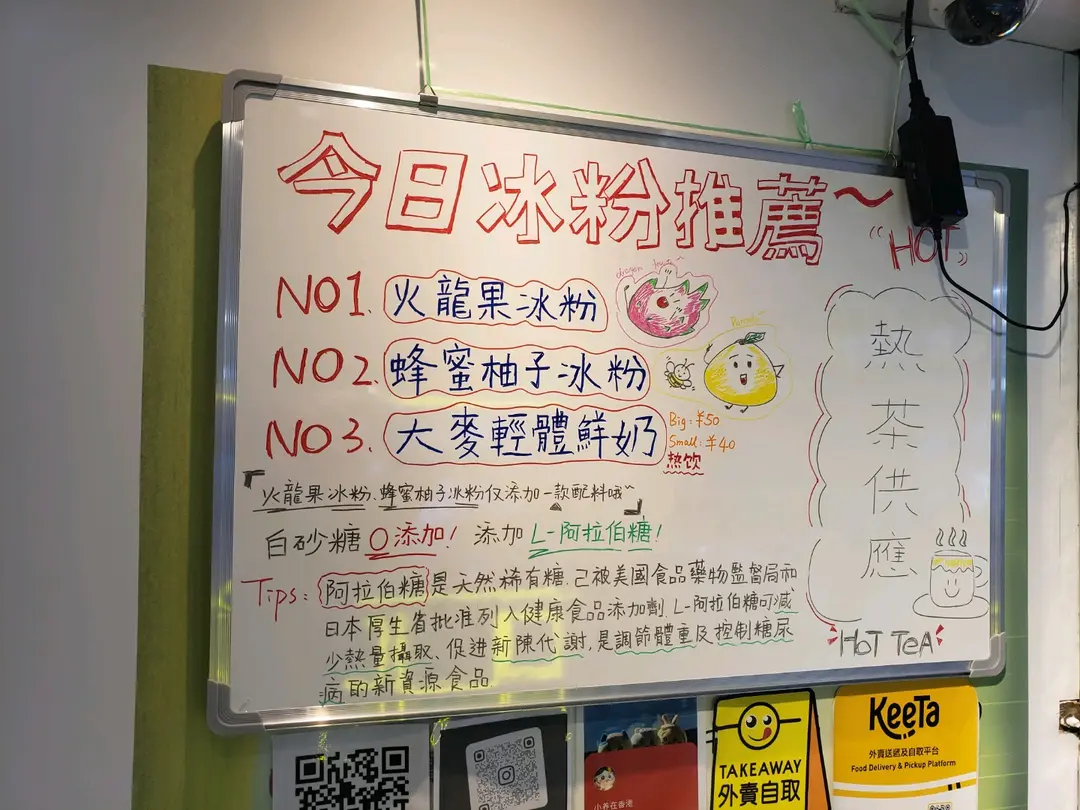 今日冰粉推薦~
"HOT"
NO1. 火龍果冰粉
dragon fruit~
NO2. 蜂蜜柚子冰粉
Pomelo~
NO3. 大麥輕體鮮奶
Big: ¥50
Small: ¥40
热饮
「火龍果冰粉、蜂蜜柚子冰粉仅添加一款配料哦~」
白砂糖0添加! 添加L-阿拉伯糖!
Tips: 阿拉伯糖是天然稀有糖.己被美國食品藥物監督局和
日本厚生省批准列入健康食品添加劑 L-阿拉伯糖可減
少熱量攝取、促进新陳代謝,是調節體重及控制糖尿
病的新資源食品
熱茶供應
HOT TeA
小喬在香港
TAKEAWAY
外賣自取
KeeTa
外賣速遞及自取平台
Food Delivery & Pickup Platform